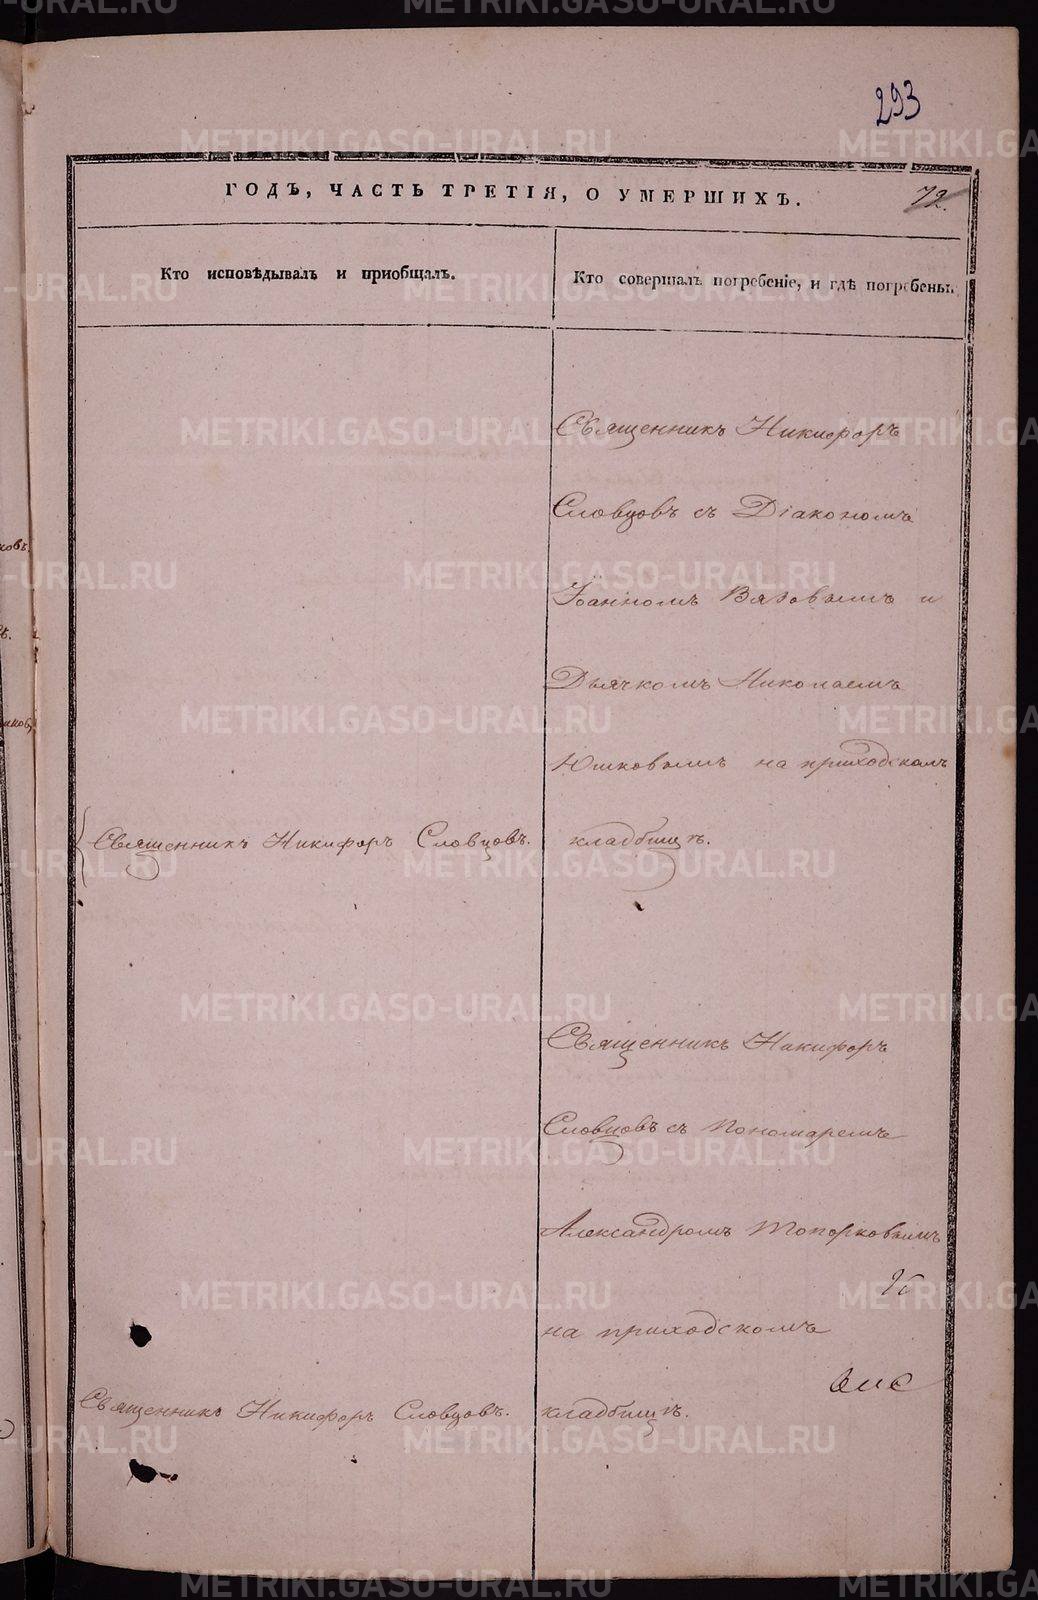 293
ГОДЪ, ЧАСТЬ ТРЕТІЯ, О УМЕРШИХЪ.
72.
Кто исповѣдывалъ и приобщалъ.
Кто совершалъ погребеніе, и гдѣ погребены.
Священникъ Никифоръ
Словцовъ съ Діакономъ
Іоанномъ Вязовымъ и
Дьячкомъ Николаемъ
Юшковымъ на приходскомъ
Священникъ Никифоръ Словцовъ.
кладбищѣ.
Священникъ Никифоръ
Словцовъ съ Пономаремъ
Александромъ Топорковымъ
на приходскомъ
Священникъ Никифоръ Словцовъ.
кладбищѣ.
ковъ.
METRIKI.GASO-URAL.RU